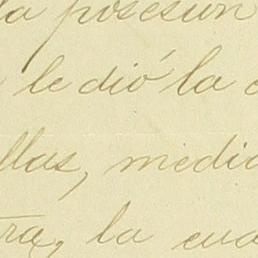 la posesion
le dió la c
llas, media
tra, la cua